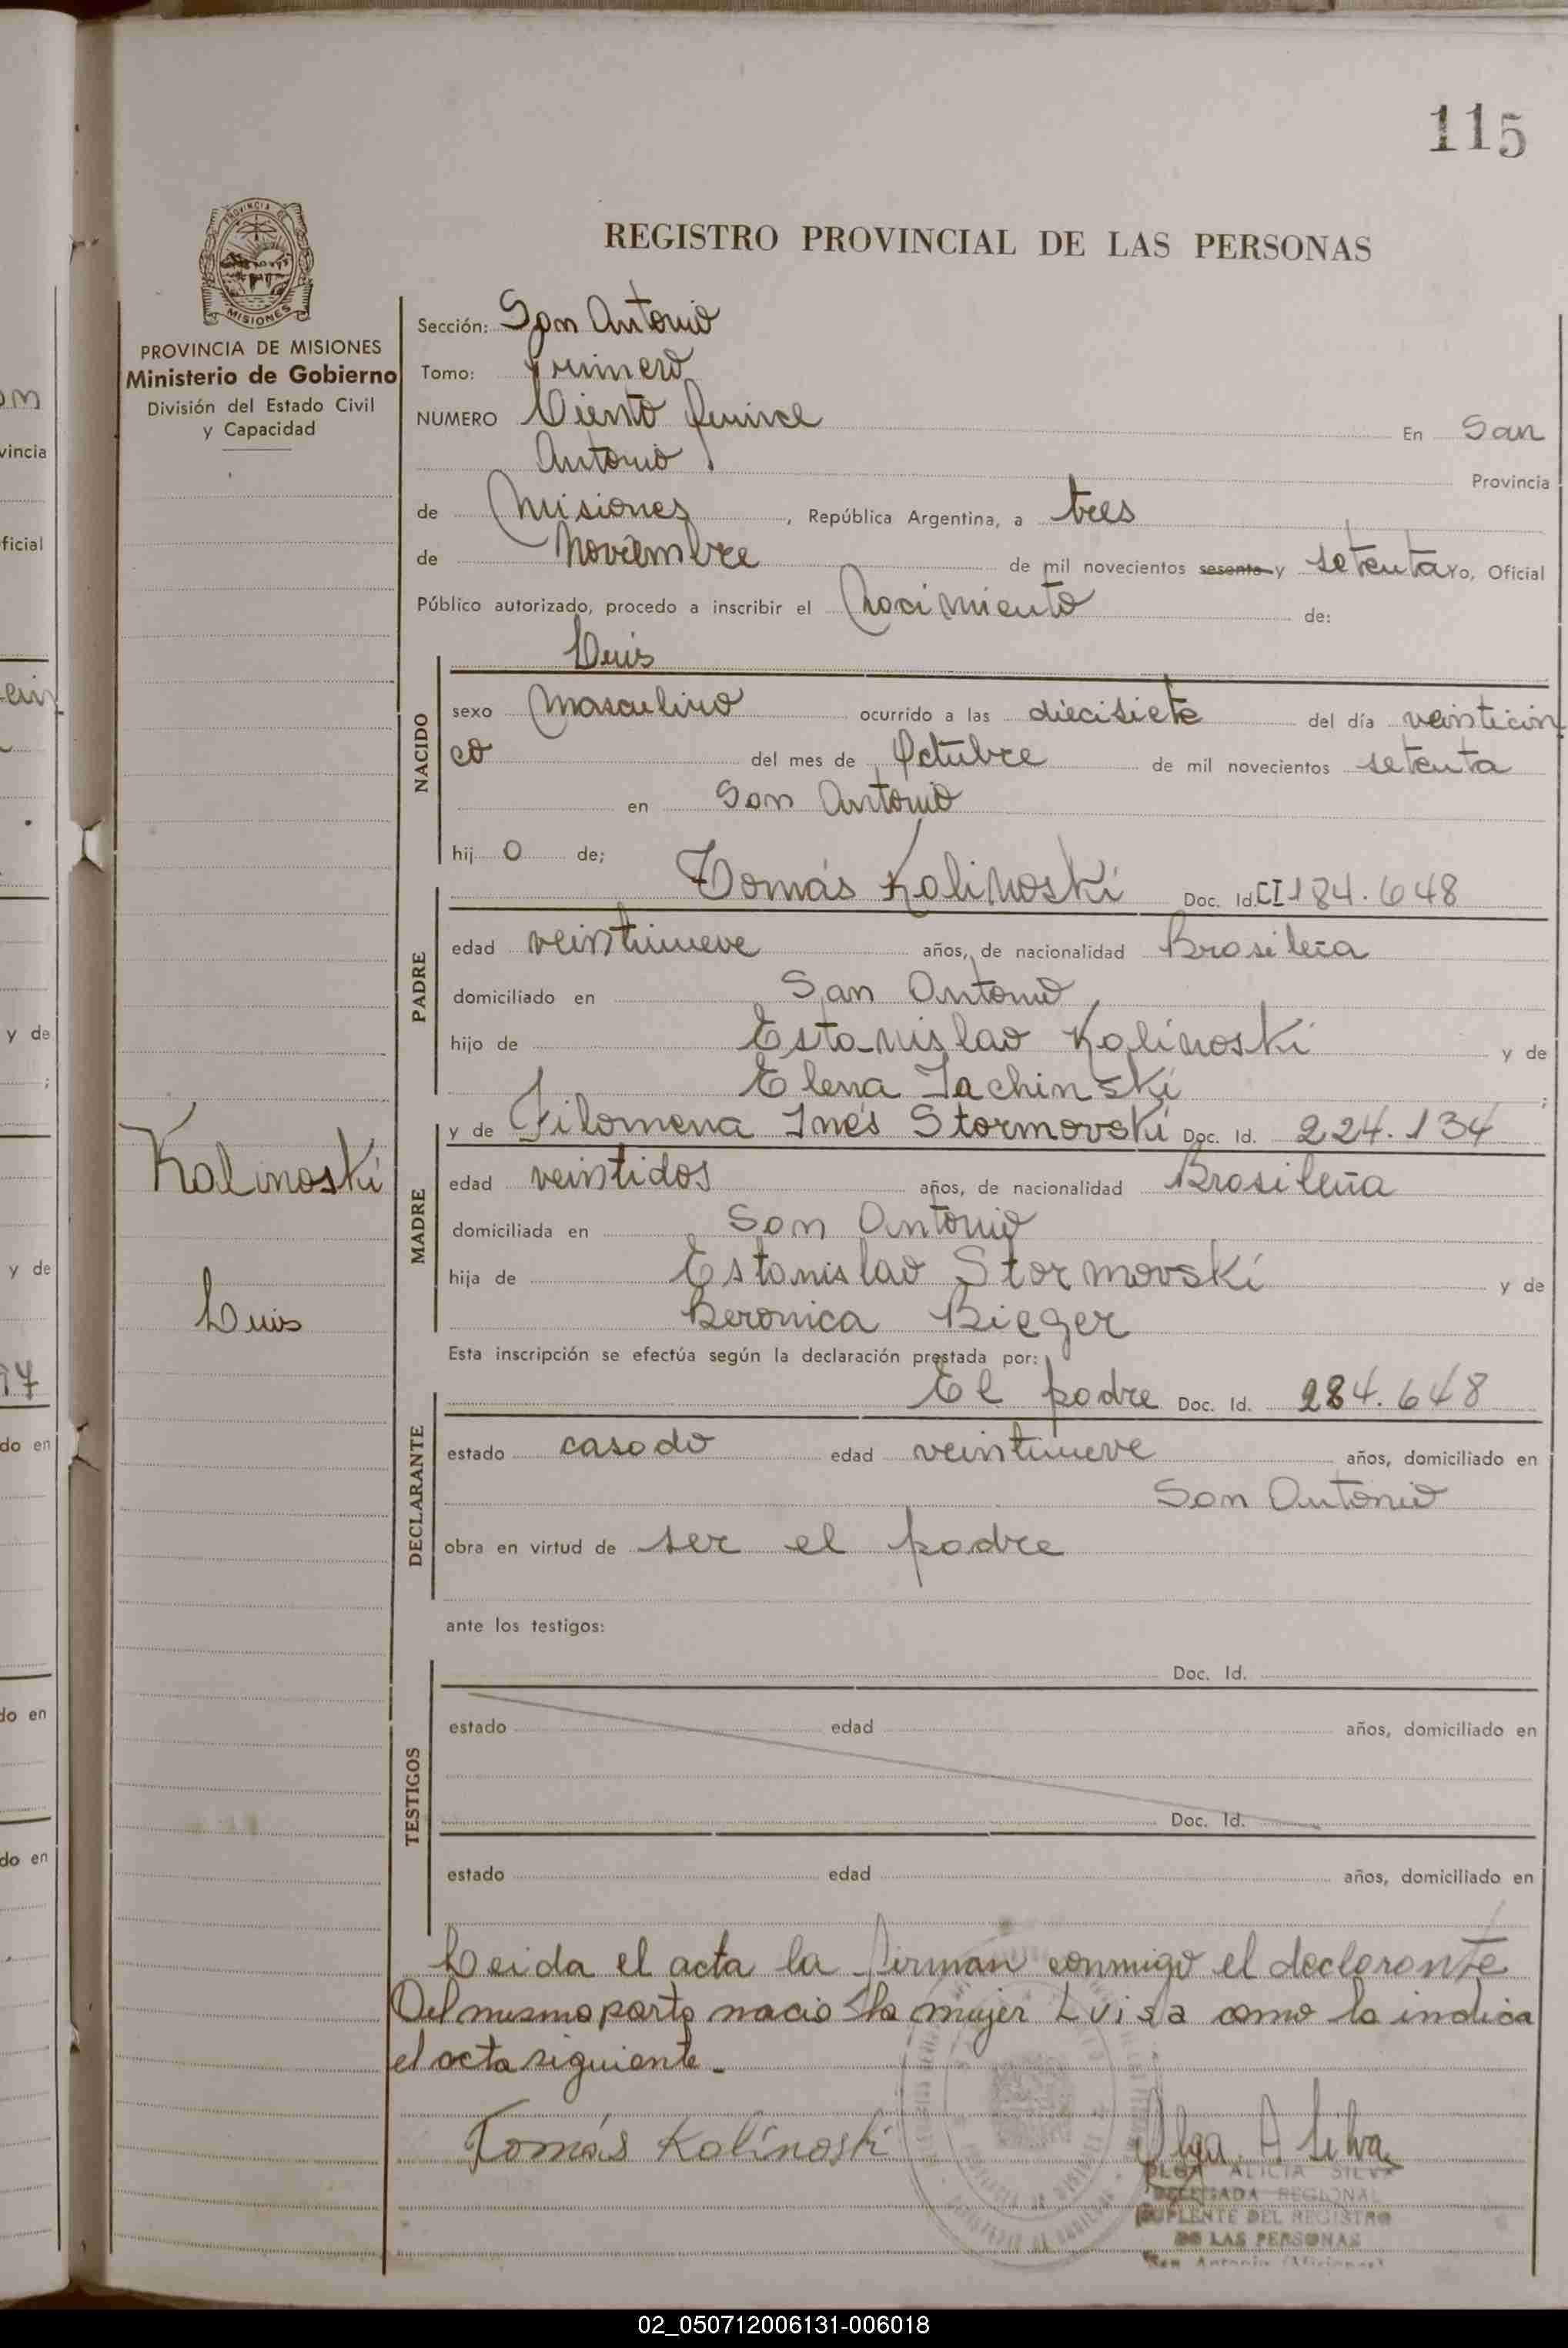 115
REGISTRO PROVINCIAL DE LAS PERSONAS
PROVINCIA DE
MISIONES
PROVINCIA DE MISIONES
Ministerio de Gobierno
División del Estado Civil
y Capacidad
Sección: San Antonio
Tomo: Primero
NUMERO Ciento Quince En San
Antonio Provincia
de Misiones, República Argentina, a tres
de Noviembre de mil novecientos sesenta y setenta Yo, Oficial
Público autorizado, procedo a inscribir el Nacimiento de:
Luis
NACIDO
sexo Masculino ocurrido a las diecisiete del día veinticin
co del mes de Octubre de mil novecientos setenta
en San Antonio
hij o de;
Tomás Kalinoski Doc. Id. CI 184.648
PADRE
edad veintinueve años, de nacionalidad Brasileña
domiciliado en San Antonio
hijo de Estanislao Kalinoski y de
Elena Jachinski ;
y de Filomena Inés Stormovski Doc. Id. 224.134
MADRE
edad veintidos años, de nacionalidad Brasileña
domiciliada en San Antonio
hija de Estanislao Stormovski y de
Beronica Bieger
Kalinoski
Luis
Esta inscripción se efectúa según la declaración prestada por:
El padre Doc. Id. 284.648
DECLARANTE
estado casado edad veintinueve años, domiciliado en
San Antonio
obra en virtud de ser el padre
ante los testigos:
Doc. Id.
TESTIGOS
estado edad años, domiciliado en
Doc. Id.
estado edad años, domiciliado en
Leida el acta la firman conmigo el declarante
Del mismo parto nacio la mujer Luisa como lo indica
el acta siguiente.
Tomás Kalinoski Olga A Silva
OLGA ALICIA SILVA
DELEGADA REGIONAL
SUPLENTE DEL REGISTRO
DE LAS PERSONAS
San Antonio (Misiones)
02_050712006131-006018